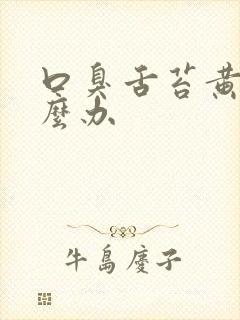 口臭舌苔黄
麼办
牛島慶子